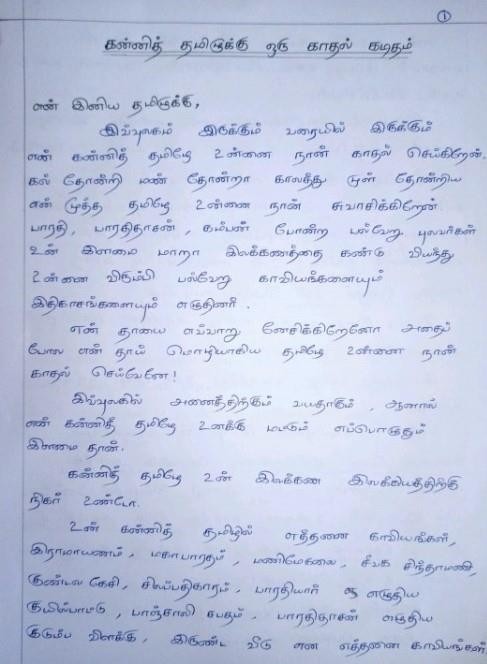 1
கன்னித் தமிழுக்கு ஒரு காதல் கடிதம்
என் இனிய தமிழுக்கு,
இவ்வுலகம் இருக்கும் வரையில் இருக்கும்
என் கன்னித் தமிழே உன்னை நான் காதல் செய்கிறேன்.
கல் தோன்றி மண் தோன்றா காலத்து முன் தோன்றிய
என் மூத்த தமிழே உன்னை நான் சுவாசிக்கிறேன்.
பாரதி, பாரதிதாசன், கம்பன் போன்ற பல்வேறு புலவர்கள்
உன் இளமை மாறா இலக்கணத்தை கண்டு வியந்து
உன்னை விரும்பி பல்வேறு காவியங்களையும்
இதிகாசங்களையும் எழுதினர்.
என் தாயை எவ்வாறு நேசிக்கிறேனோ அதைப்
போல என் தாய் மொழியாகிய தமிழே உன்னை நான்
காதல் செய்வேனே!
இவ்வுலகில் அனைத்திற்கும் வயதாகும், ஆனால்
என் கன்னித் தமிழே உனக்கு மட்டும் எப்பொழுதும்
இளமை தான்.
கன்னித் தமிழே உன் இலக்கண இலக்கியத்திற்கு
நிகர் உண்டோ.
உன் கன்னித் தமிழில் எத்தனை காவியங்கள்,
இராமாயணம், மகாபாரதம், மணிமேகலை, சீவக சிந்தாமணி,
குண்டல கேசி, சிலப்பதிகாரம், பாரதியார் எழுதிய
குயில்பாட்டு, பாஞ்சாலி சபதம், பாரதிதாசன் எழுதிய
குடும்ப விளக்கு, இருண்ட வீடு என எத்தனை காவியங்கள்